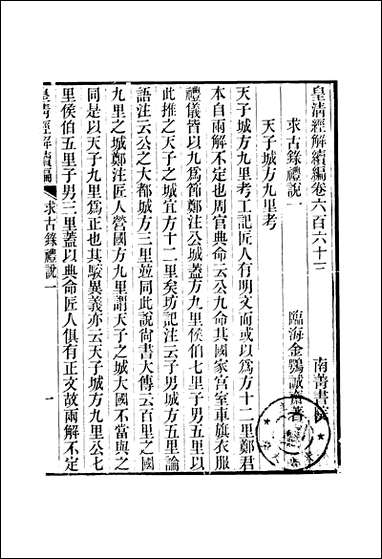 皇清經解續編卷六百六十三　南菁書院
求古錄禮說一　臨海金鶚誠齋著
天子城方九里考
天子城方九里考工記匠人有明文而或以爲方十二里鄭君
本自兩解不定也周官典命云公九命其國家宮室車旗衣服
禮儀皆以九爲節鄭注公城蓋方九里侯伯七里子男五里以
此推之天子之城宜方十二里矣坊記注云子男城方五里論
語注云公之大都城方三里並同此說尙書大傳云百里之國
九里之城鄭注匠人營國方九里謂天子之城大國不當與之
同是以天子九里爲正也其駁異義亦云天子城方九里公七
里侯伯五里子男三里蓋以典命匠人俱有正文故兩解不定
皇清經解續編　求古錄禮說一　一